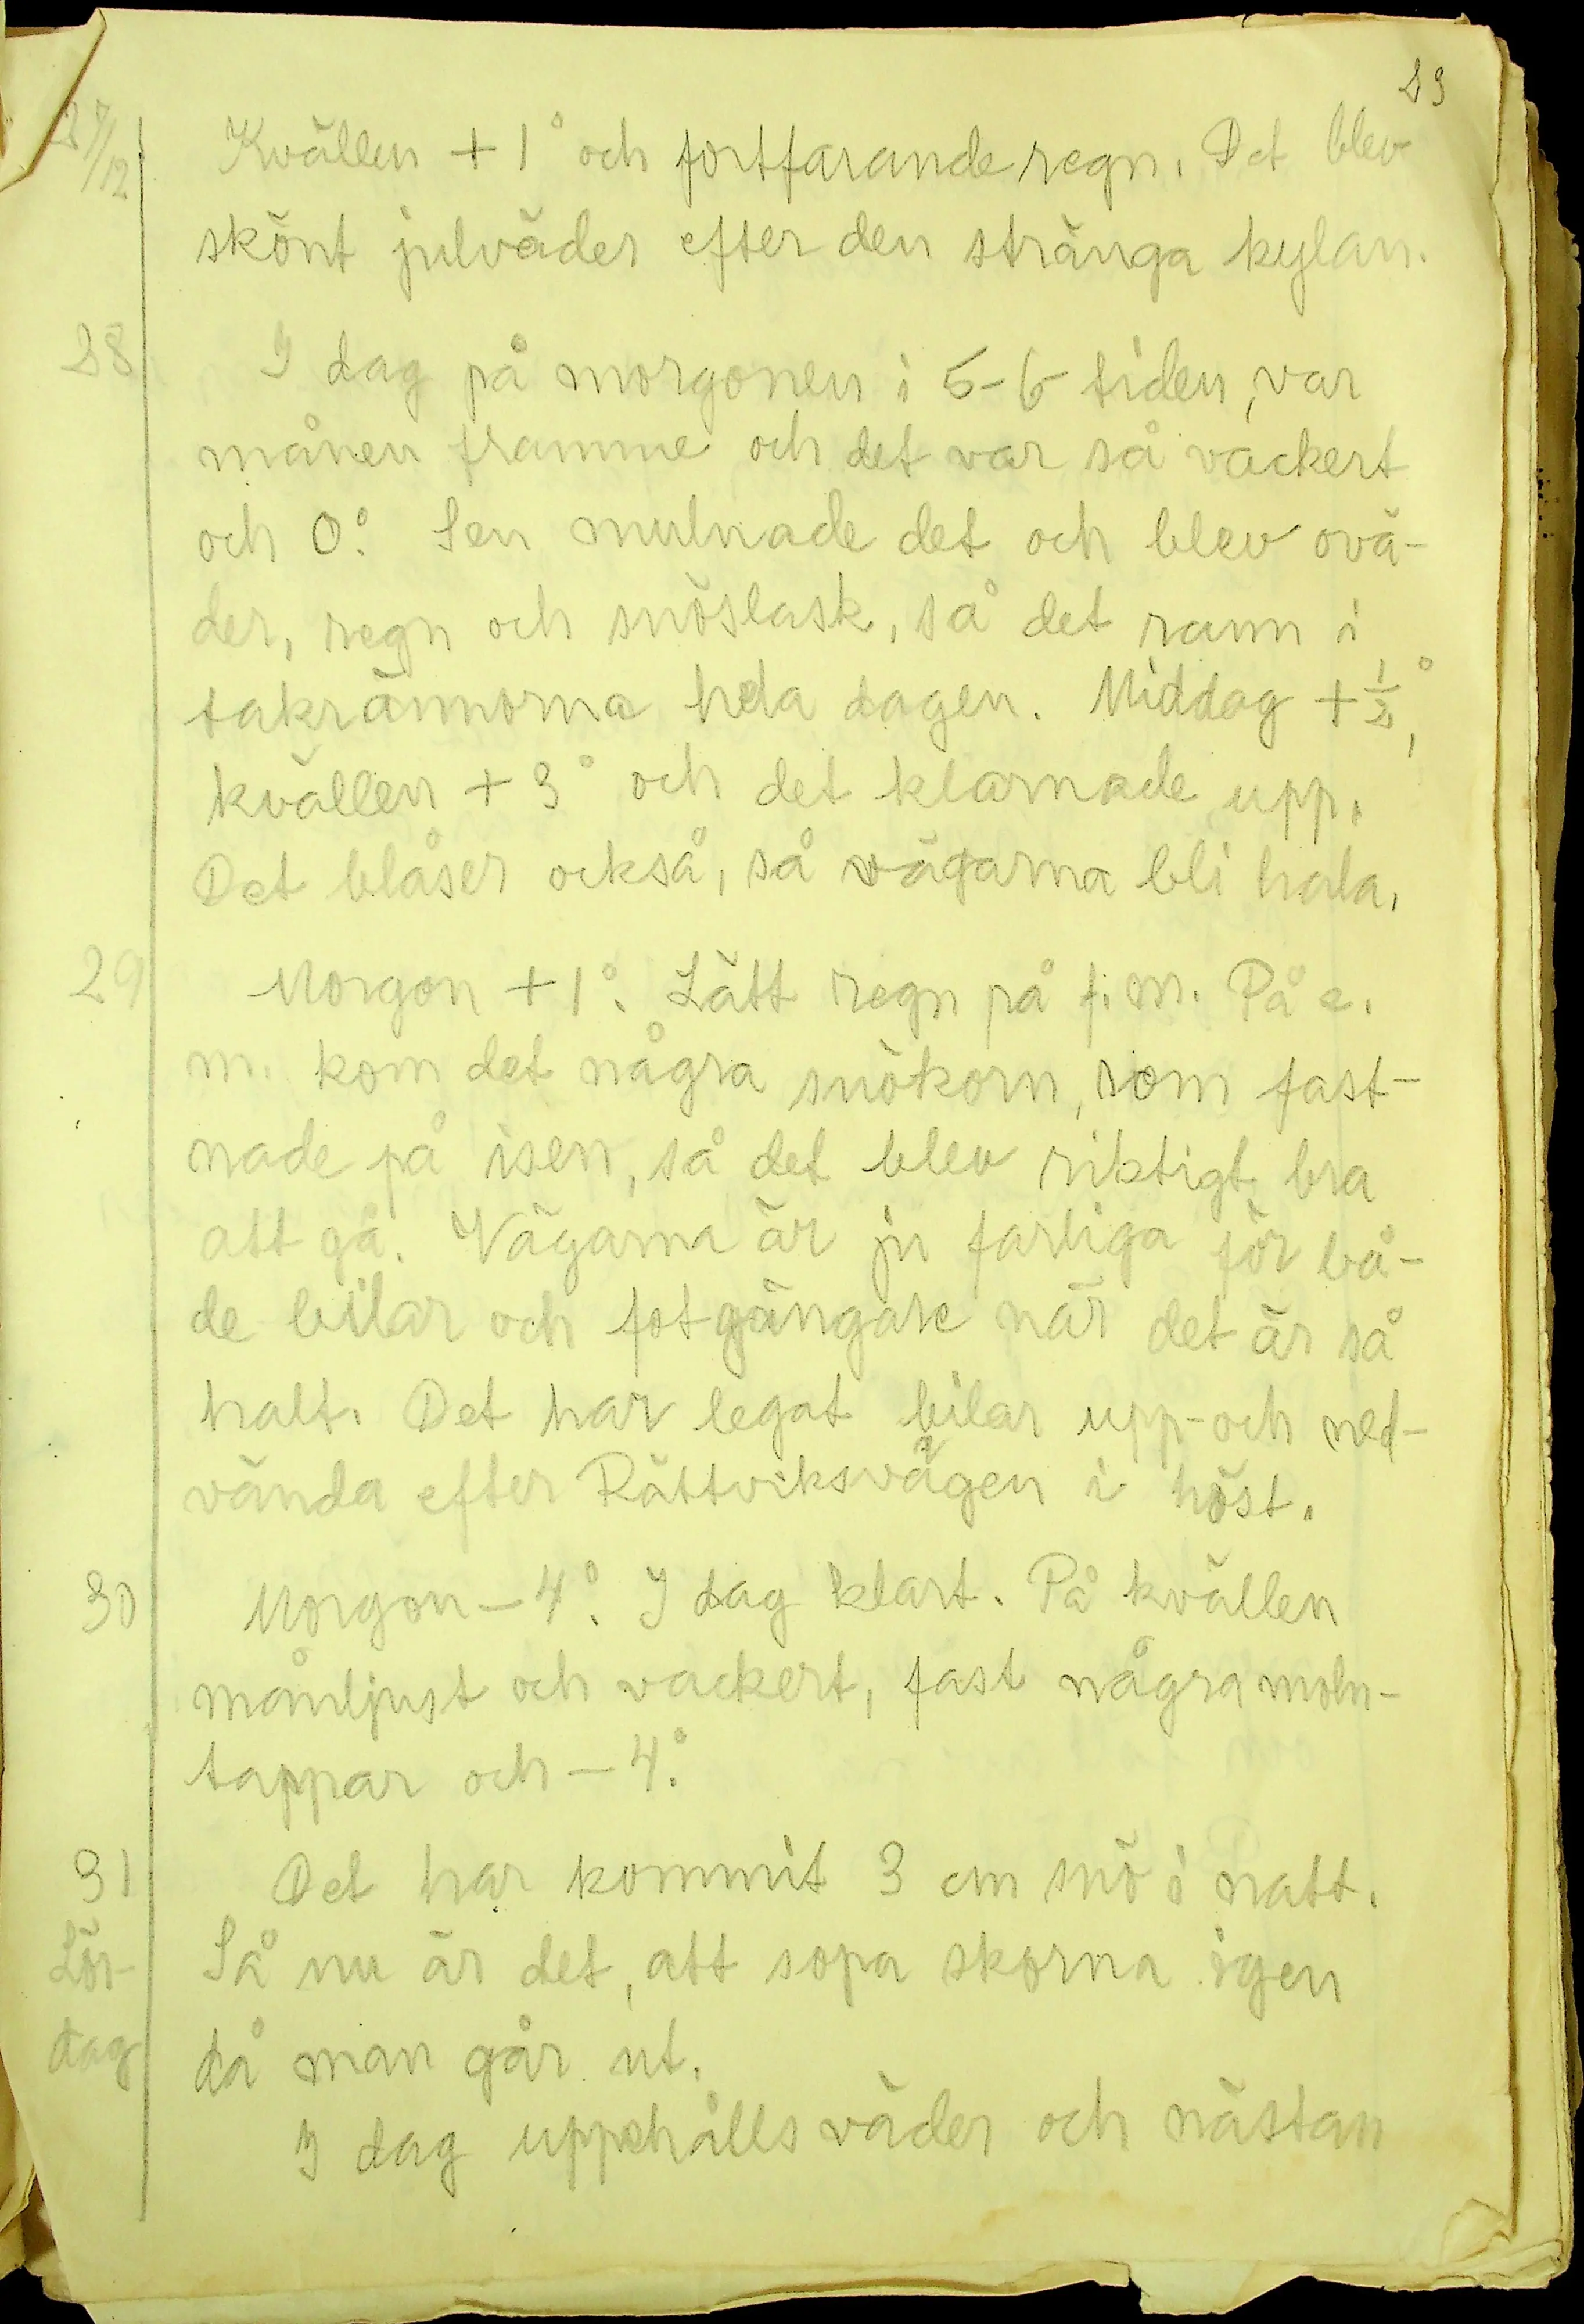 23
27/12 Kvällen + 1° och fortfarande regn. Det blev
skönt julväder efter den stränga kylan.
28 I dag på morgonen i 5-6 tiden, var
månen framme och det var så vackert
och 0°. Sen mulnade det och blev ovä-
der, regn och snöslask, så det rann i
takrännorna hela dagen. Middag + ½°,
kvällen + 3° och det klarnade upp.
Det blåser också, så vägarna bli hala.
29 Morgon + 1°. Lätt regn på f.m. På e.
m. kom det några snökorn, som fast-
nade på isen, så det blev riktigt bra
att gå. Vägarna är ju farliga för bå-
de bilar och fotgängare när det är så
halt. Det har legat bilar upp- och ned-
vända efter Rättviksvägen i höst.
30 Morgon - 4°. I dag klart. På kvällen
månljust och vackert, fast några moln-
tappar och - 4°.
31 Det har kommit 3 cm snö i natt.
Lör- Så nu är det, att sopa skorna igen
dag då man går ut.
I dag uppehålls väder och nästan